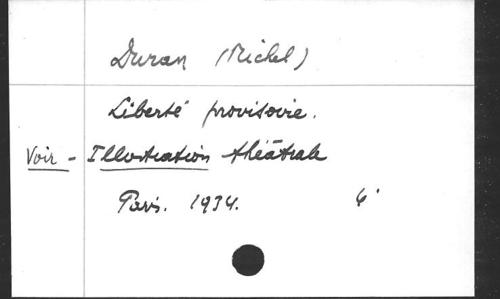 Duran (Michel)
Liberté provisoire.
Voir - Illustration théâtrale
Paris. 1934.